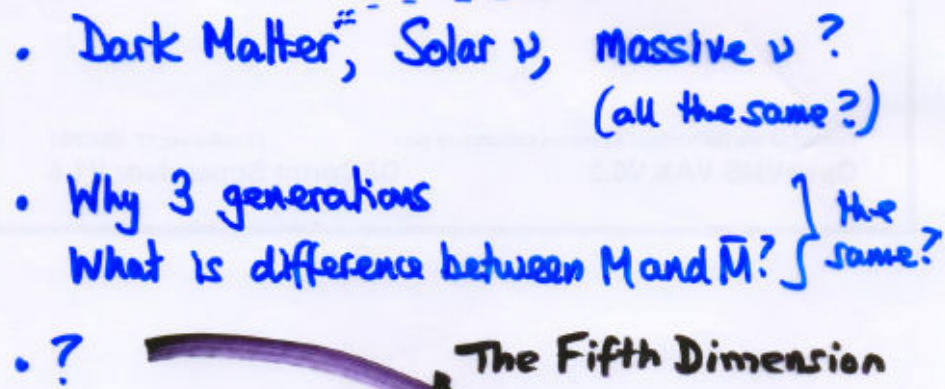 • Dark Matter, Solar ν, massive ν ?
(all the same?)
• Why 3 generations } the
What is difference between M and M̄? } same?
• ? The Fifth Dimension